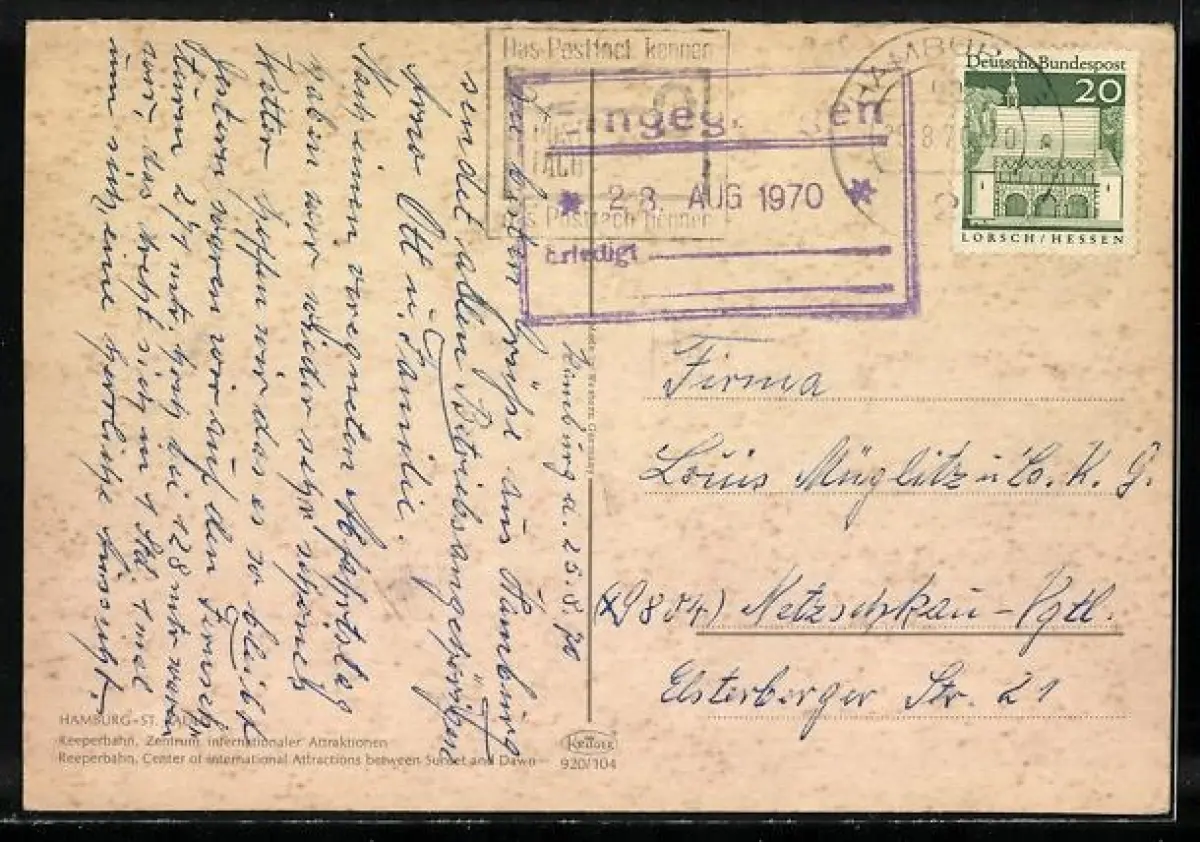 Hamburg d. 25.8.70
Die besten Grüße aus Hamburg
sendet allen Betriebsangehörigen
Arno Ott u. Familie.
Nach einem verregneten Abfahrtstag
haben wir wieder sehr schönes
Wetter hoffen wir das es so bleibt
Gestern waren wir auf den Fernseh
Turm 271 mtr. hoch bei 128 mtr waren
wir, das dreht sich in 1 Std. 1 mal
um sich, eine herrliche Aussicht.
HAMBURG-ST. PAULI
Reeperbahn, Zentrum internationaler Attraktionen
Reeperbahn, Center of international Attractions between Sunset and Dawn
KRÜGER
920/104
Das Postfach kennen
das Postfach nennen
HAMBURG
Eingegangen
* 28. AUG 1970 *
Erledigt
Deutsche Bundespost
20
LORSCH/HESSEN
Firma
Louis Müglitz u. Co. K. G.
(X9804) Netzschkau-Vgtl.
Elsterberger Str. 21